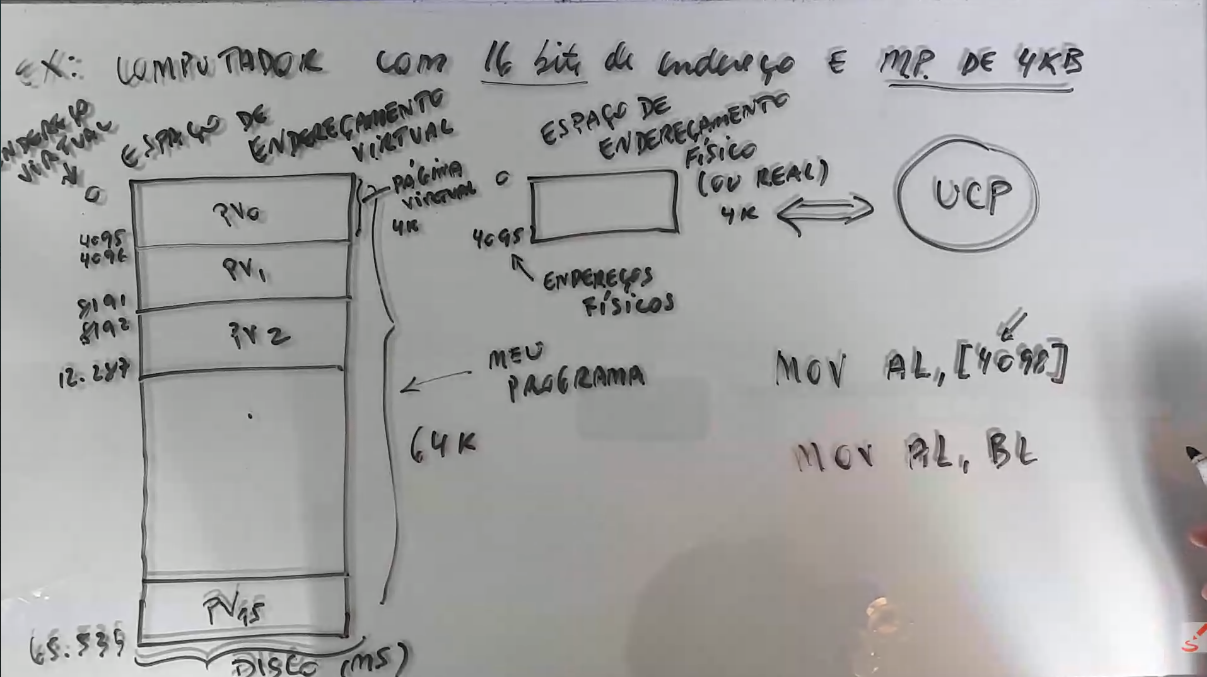 EX: COMPUTADOR COM 16 bits de endereço E M.P. DE 4KB
ENDEREÇO
VIRTUAL
ESPAÇO DE
ENDEREÇAMENTO
VIRTUAL
0
PV0
4095
4096
PV1
8191
8192
PV2
12.287
PV15
65.535
DISCO (MS)
PÁGINA
VIRTUAL
4K
MEU
PROGRAMA
64K
ESPAÇO DE
ENDEREÇAMENTO
FÍSICO
(OU REAL)
4K
0
4095
ENDEREÇOS
FÍSICOS
UCP
MOV AL, [4098]
MOV AL, BL